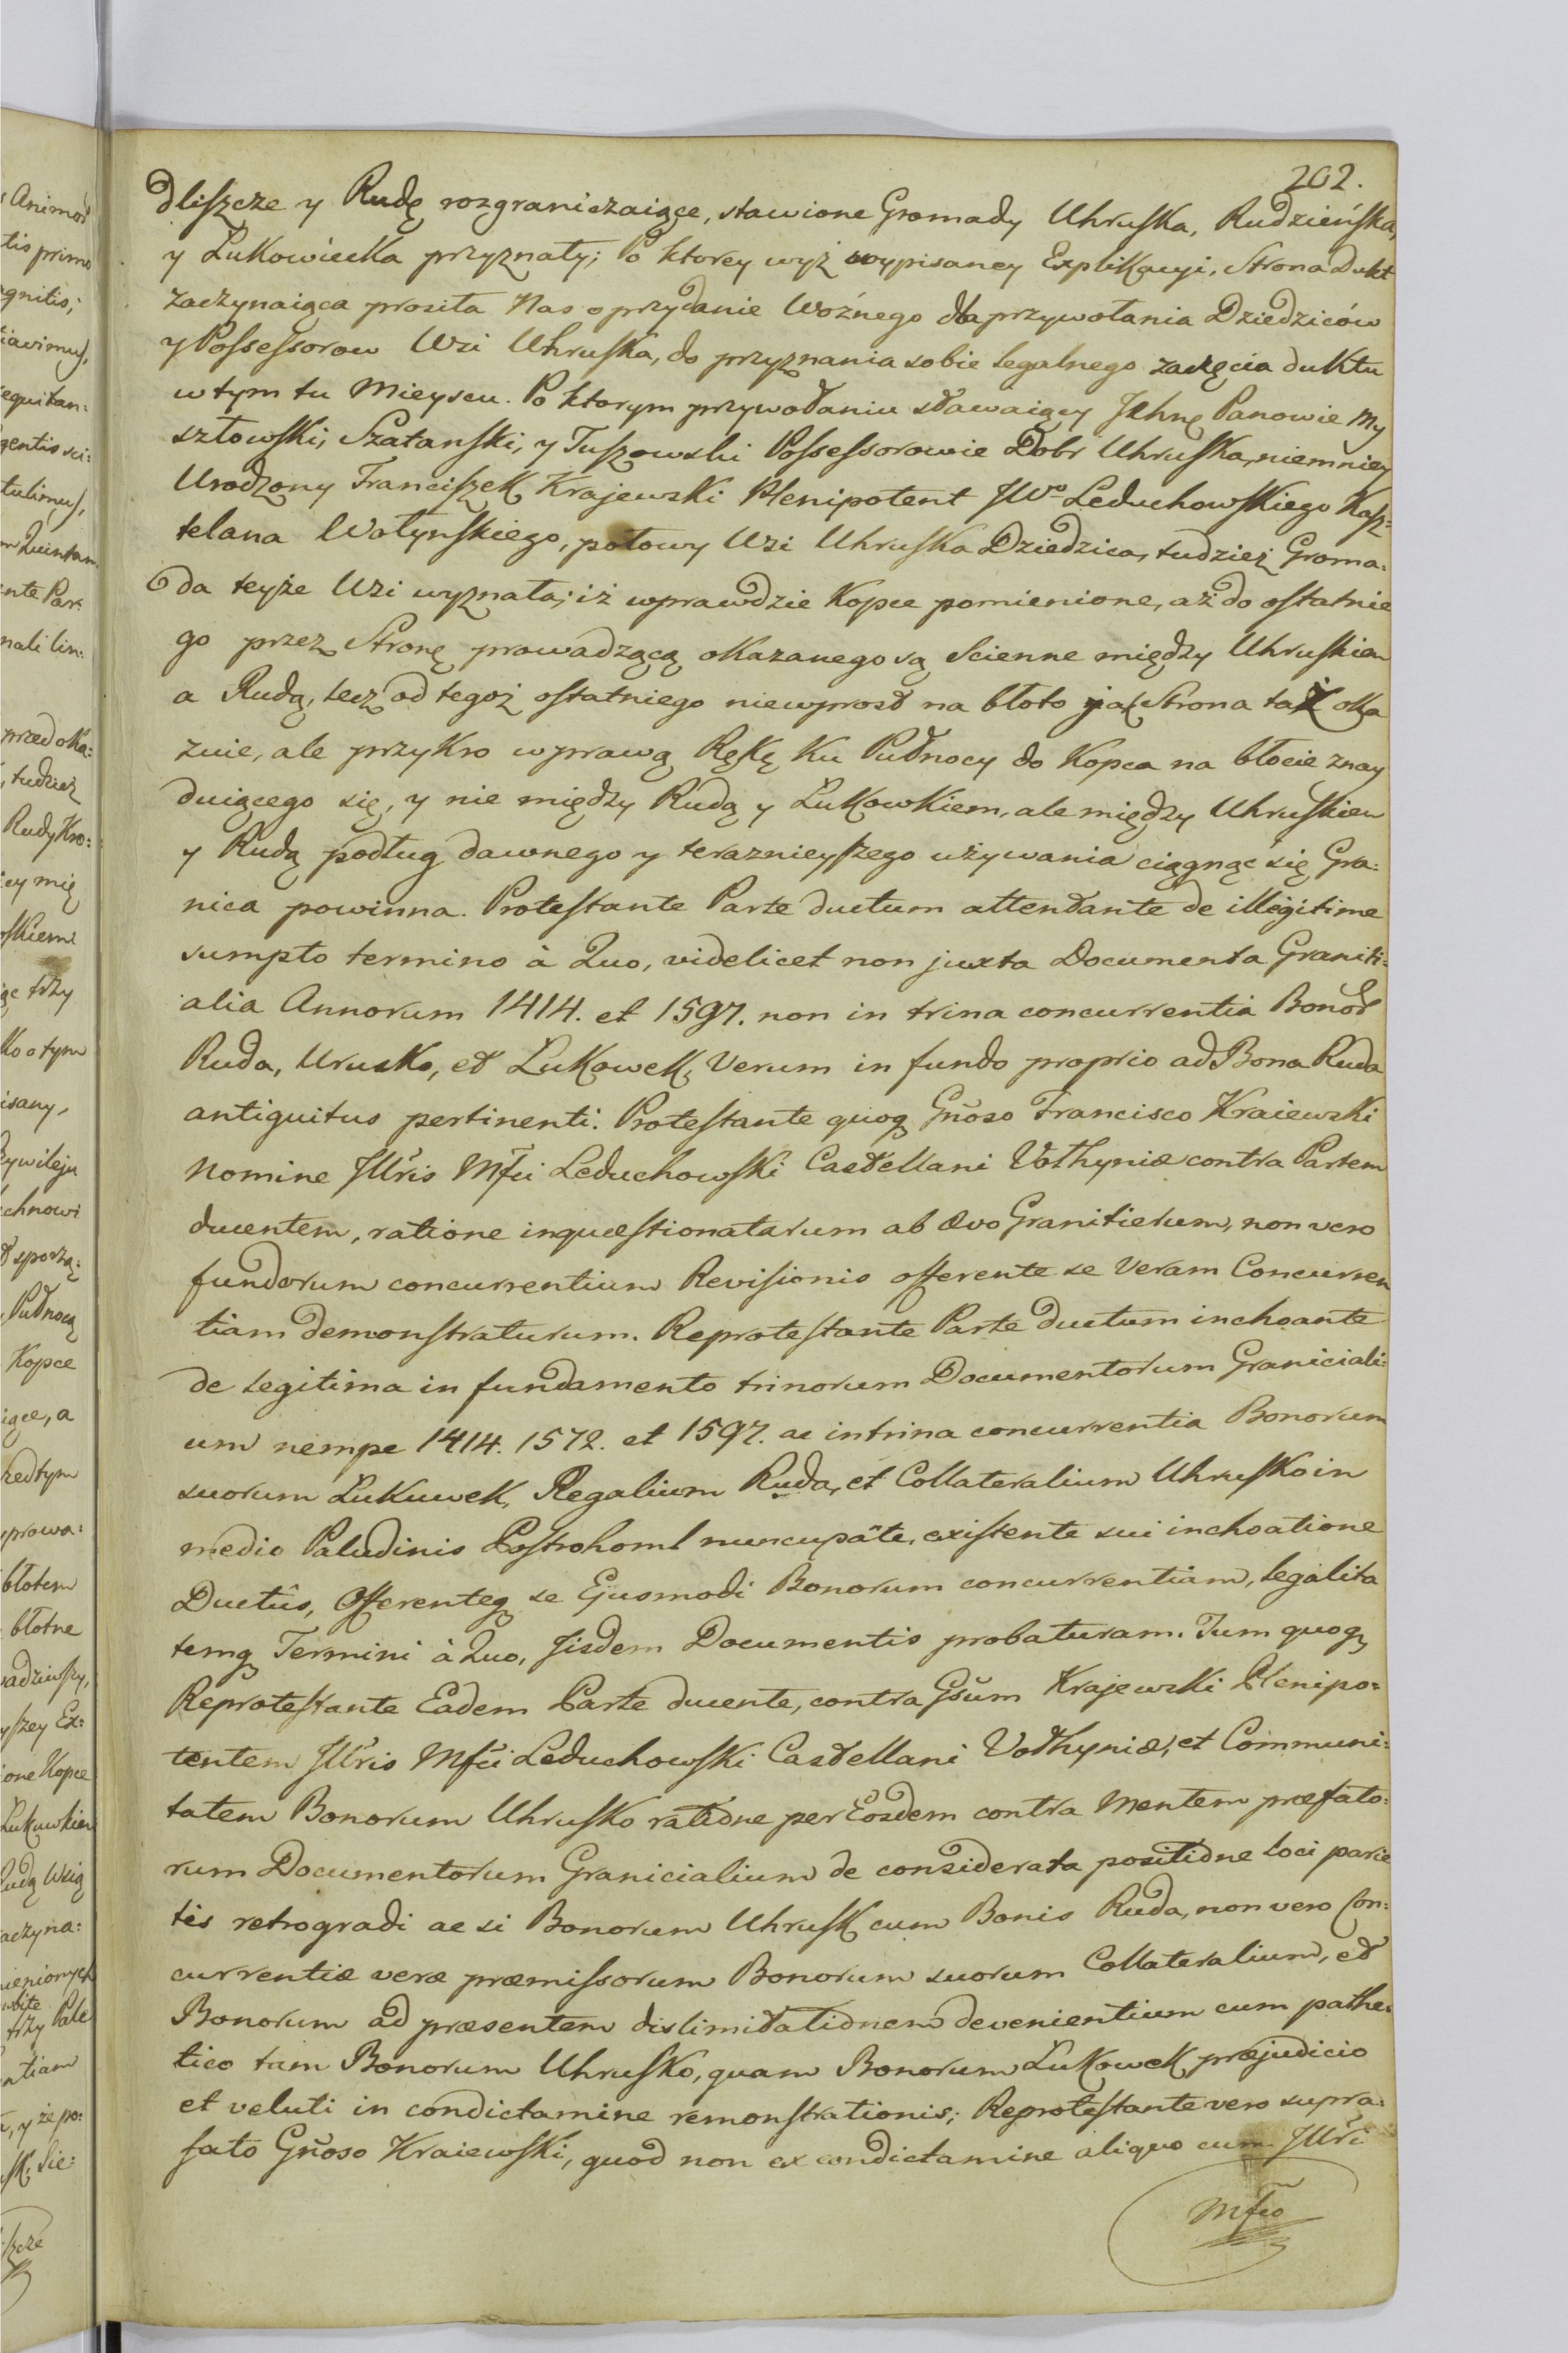 202.
dliszcze y Rudę rozgraniczaiące, stawione Gromady Uhruska, Rudzieńska,
y Łukowiecka przyznały; Po ktorey wyż wypisaney Explikacyi, Strona Dukt
zaczynaiąca prosiła Nas o przydanie Woźnego dla przywołania Dziedziców
y Possessorow Wsi Uhruska, do przyznania sobie legalnego zaczęcia duktu
w tym tu Mieyscu. Po ktorym przywołaniu stawaiący Panowie My
szłowski, Szatanski, y Tuszowski Possessorowie Dobr Uhruska, niemniey
Urodzony Franciszek Krajewski Plenipotent JWo Leduchowskiego Kasz=
telana Wołynskiego, połowy Wsi Uhruska Dziedzica, tudzież Groma=
da teyże Wsi wyznała; iż wprawdzie Kopce pomienione, aż do ostatnie
go przez Stronę prowadzącą okazanego są Scienne między Uhruskiem
a Rudą, lecz od tegoż ostatniego niewprost na błoto jak Strona taż oka
zuie, ale przykro w prawą Rękę Ku Pułnocy do Kopca na błocie znay
duiącego się, y nie między Rudą y Łukowkiem, ale między Uhruskiem
y Rudą podług dawnego y teraznieyszego używania ciągnąć się Gra=
nica powinna. Protestante Parte ductum attentante de illegitime
sumpto termino à Quo, videlicet non juxta Documenta Graniti=
alia Annorum 1414. et 1597. non in trina concurrentia Bonor
Ruda, Urusko, et Łukowek, Verum in fundo proprio ad Bona Ruda
antiquitus pertinenti. Protestante quoq Gnoso Francisco Kraiewski
Nomine Jllris Mfci Leduchowski Castellani Volhyniæ contra Partem
ducentem, ratione inquæstionatarum ab ævo Granitierum, non vero
fundorum concurrentium Revisionis offerente se Veram Concurren
tiam demonstraturum. Reprotestante Parte ductum inchoante
de legitima in fundamento trinorum Documentorum Graniciali=
um nempe 1414. 1572. et 1597. ac in trina concurrentia Bonorum
suorum Łukuwek, Regalium Ruda, et Collateralium Uhrusko in
medio Paludinis nuncupatæ, existente sui inchoatione
Ductûs, Offerenteq se Ejusmodi Bonorum concurrentiam, legalita
temq Termini à Quo, Jisdem Documentis probaturam. Tum quoq
Reprotestante Eadem Parte ducente, contra Gsum Krajewski Plenipo=
tentem Jllris Mfci Leduchowski Castellani Volhyniæ, et Communi=
tatem Bonorum Uhrusko ratione per Eosdem contra Mentem præfato=
rum Documentorum Granicialium de considerata positione loci parie
tis retrogradi ac si Bonorum Uhrusk cum Bonis Ruda, non vero Con=
currentiæ veræ præmissorum Bonorum suorum Collateralium, et
Bonorum ad præsentem dislimitationem devenientium cum pathe=
tico tam Bonorum Uhrusko, quam Bonorum Łukowek præjudicio
et veluti in condictamine remonstrationis; Reprotestante vero supra=
fato Gnoso Kraiewski, quod non ex condictamine aliquo cum Jllri
Mfco